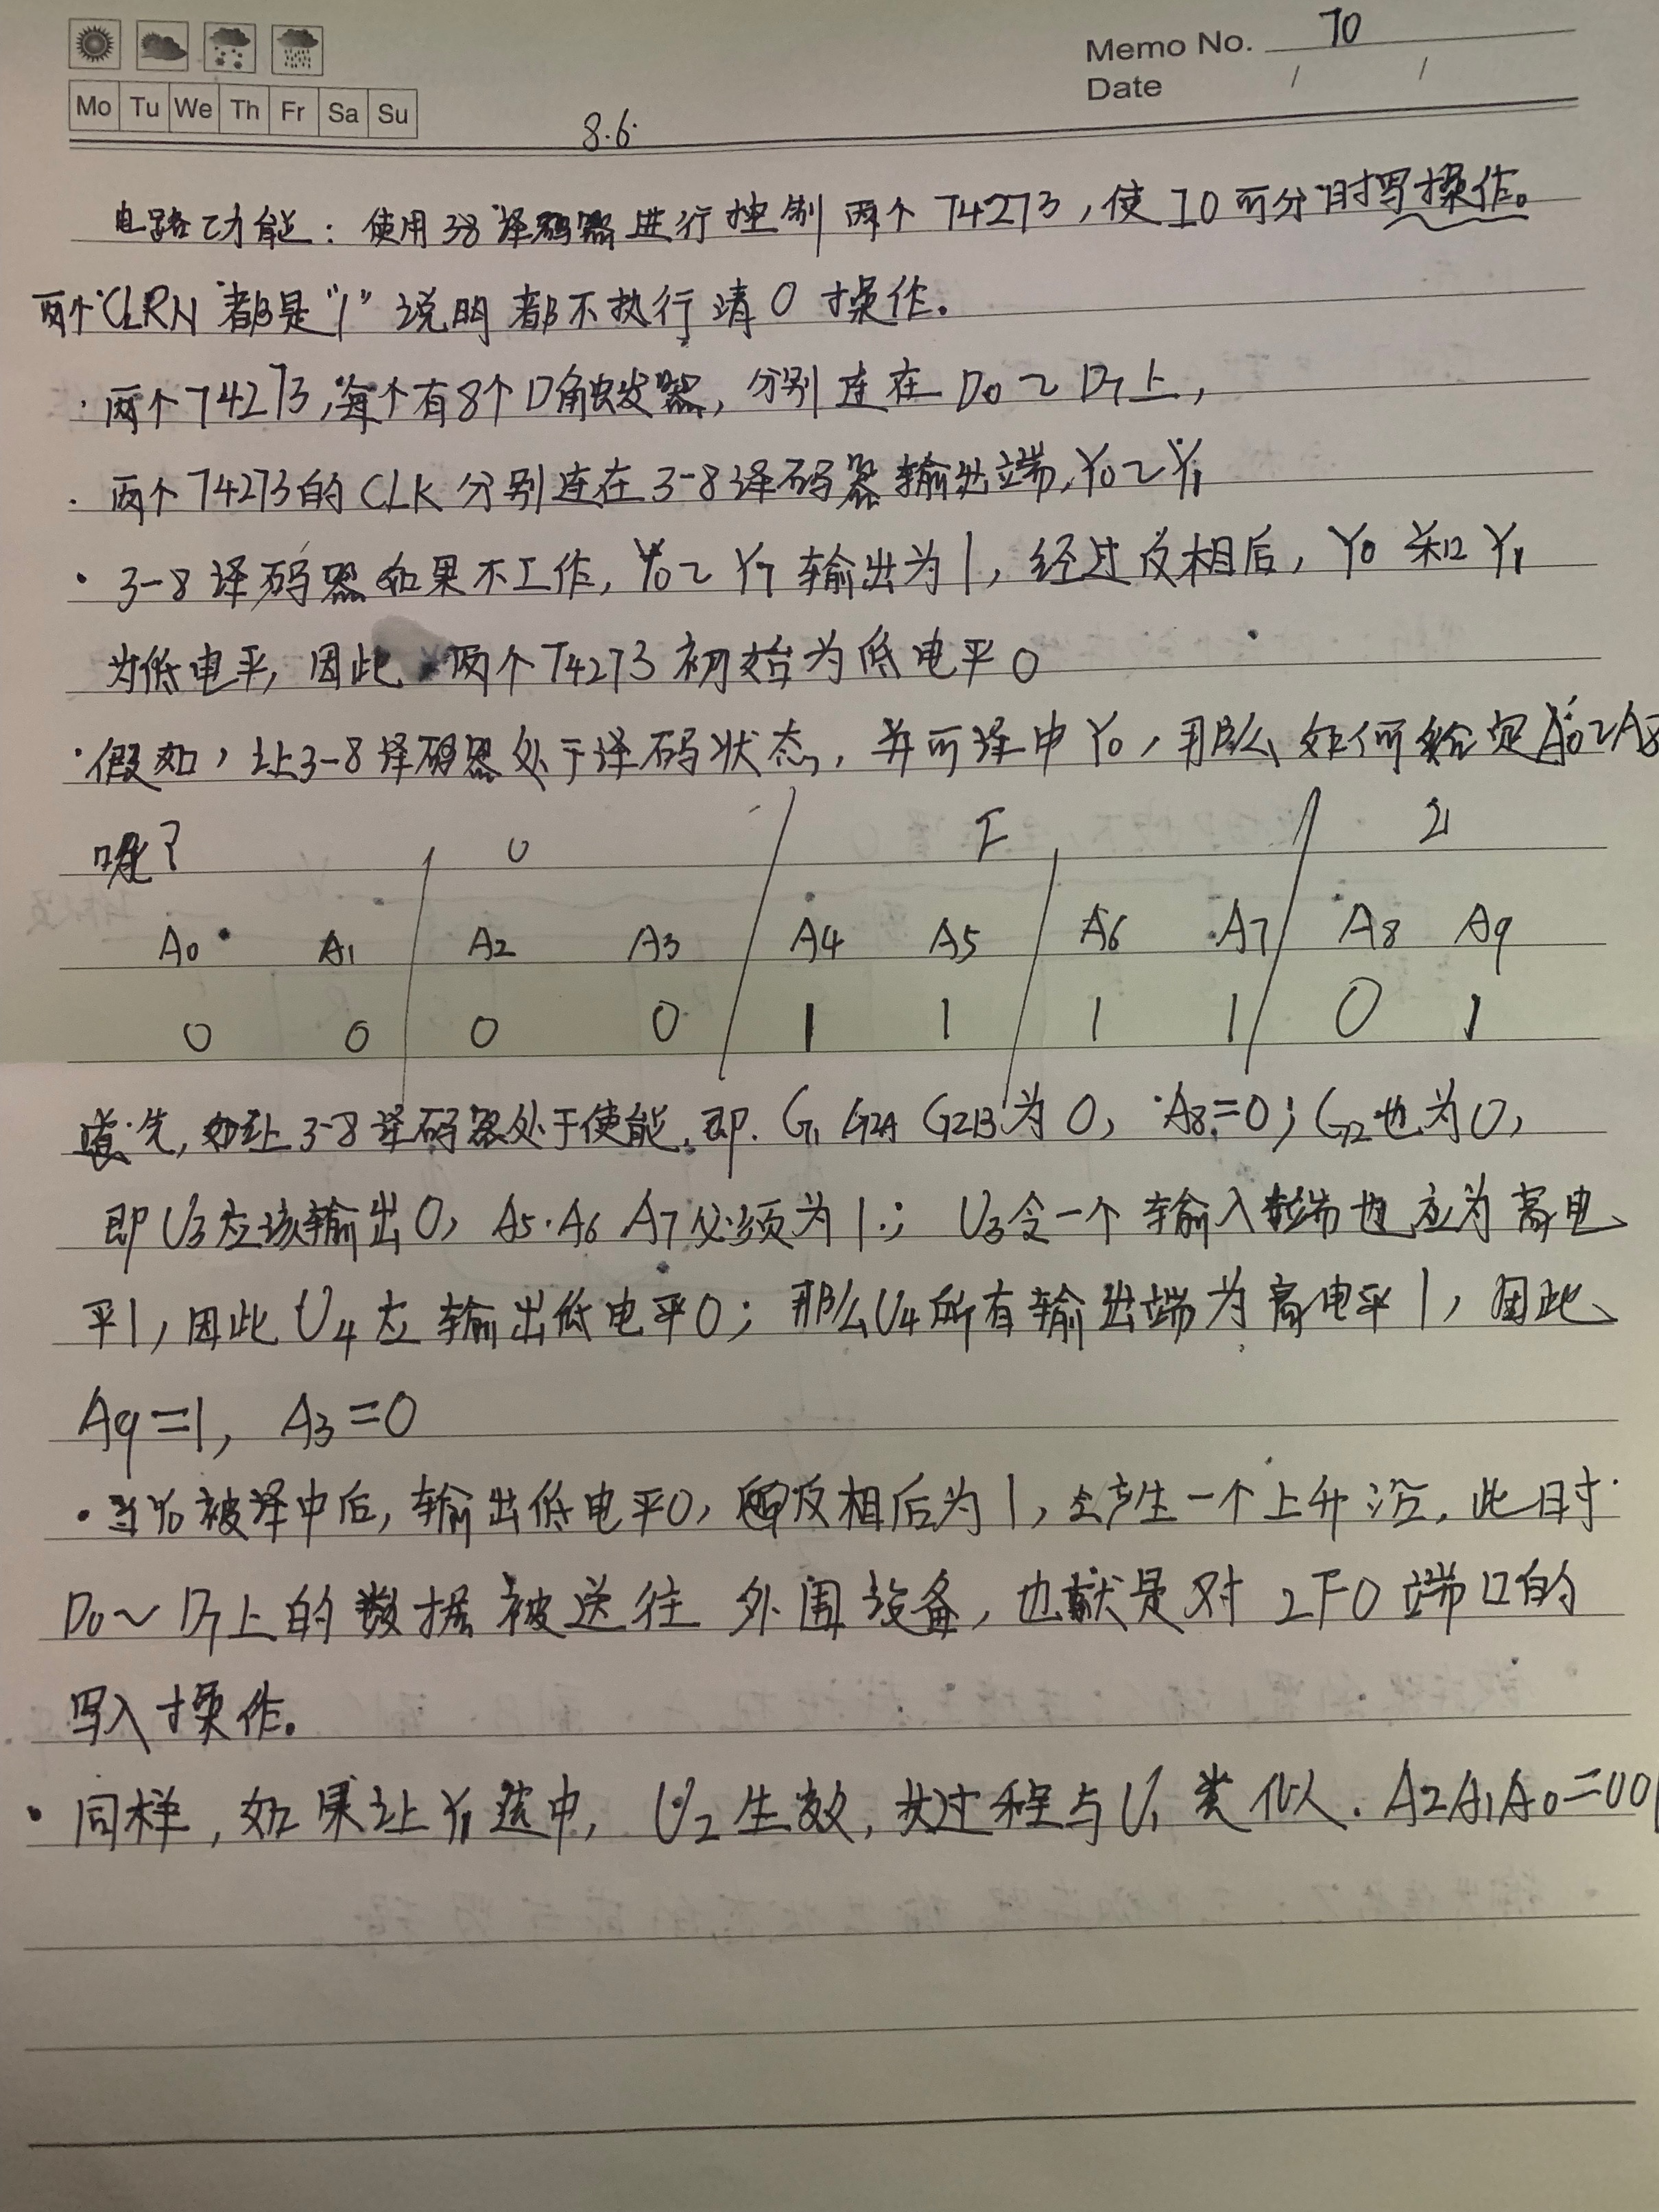 Memo No. 70
Date / /
Mo Tu We Th Fr Sa Su
8.6
电路功能：使用38译码器进行控制两个74273，使IO可分时写操作。
两个CLRN都是“1”说明都不执行清0操作.
·两个74273,每个有8个D触发器，分别连在D0~D7上，
·两个74273的CLK分别连在3-8译码器输出端,Y0~Y1
·3-8译码器如果不工作，Y0~Y7输出为1，经过反相后，Y0和Y1
为低电平，因此两个74273初始为低电平0
·假如，让3-8译码器处于译码状态，并可译中Y0，那么如何给定A0~A8
呢？ 0 F 2
A0 A1 A2 A3 A4 A5 A6 A7 A8 A9
0 0 0 0 1 1 1 1 0 1
首先，如让3-8译码器处于使能.即.G1 G2A G2B为0，A8=0；G2也为0，
即U3应该输出0，A5.A6 A7必须为1；U3令一个输入端也应为高电
平1，因此U4应输出低电平0；那么U4所有输出端为高电平1，因此
A9=1，A3=0
·当Y0被译中后，输出低电平0，反相后为1，会产生一个上升沿，此时
D0~D7上的数据被送往外围设备，也就是对2F0端口的
写入操作。
·同样，如果让Y1选中，U2生效，其过程与U1类似.A2A1A0=001